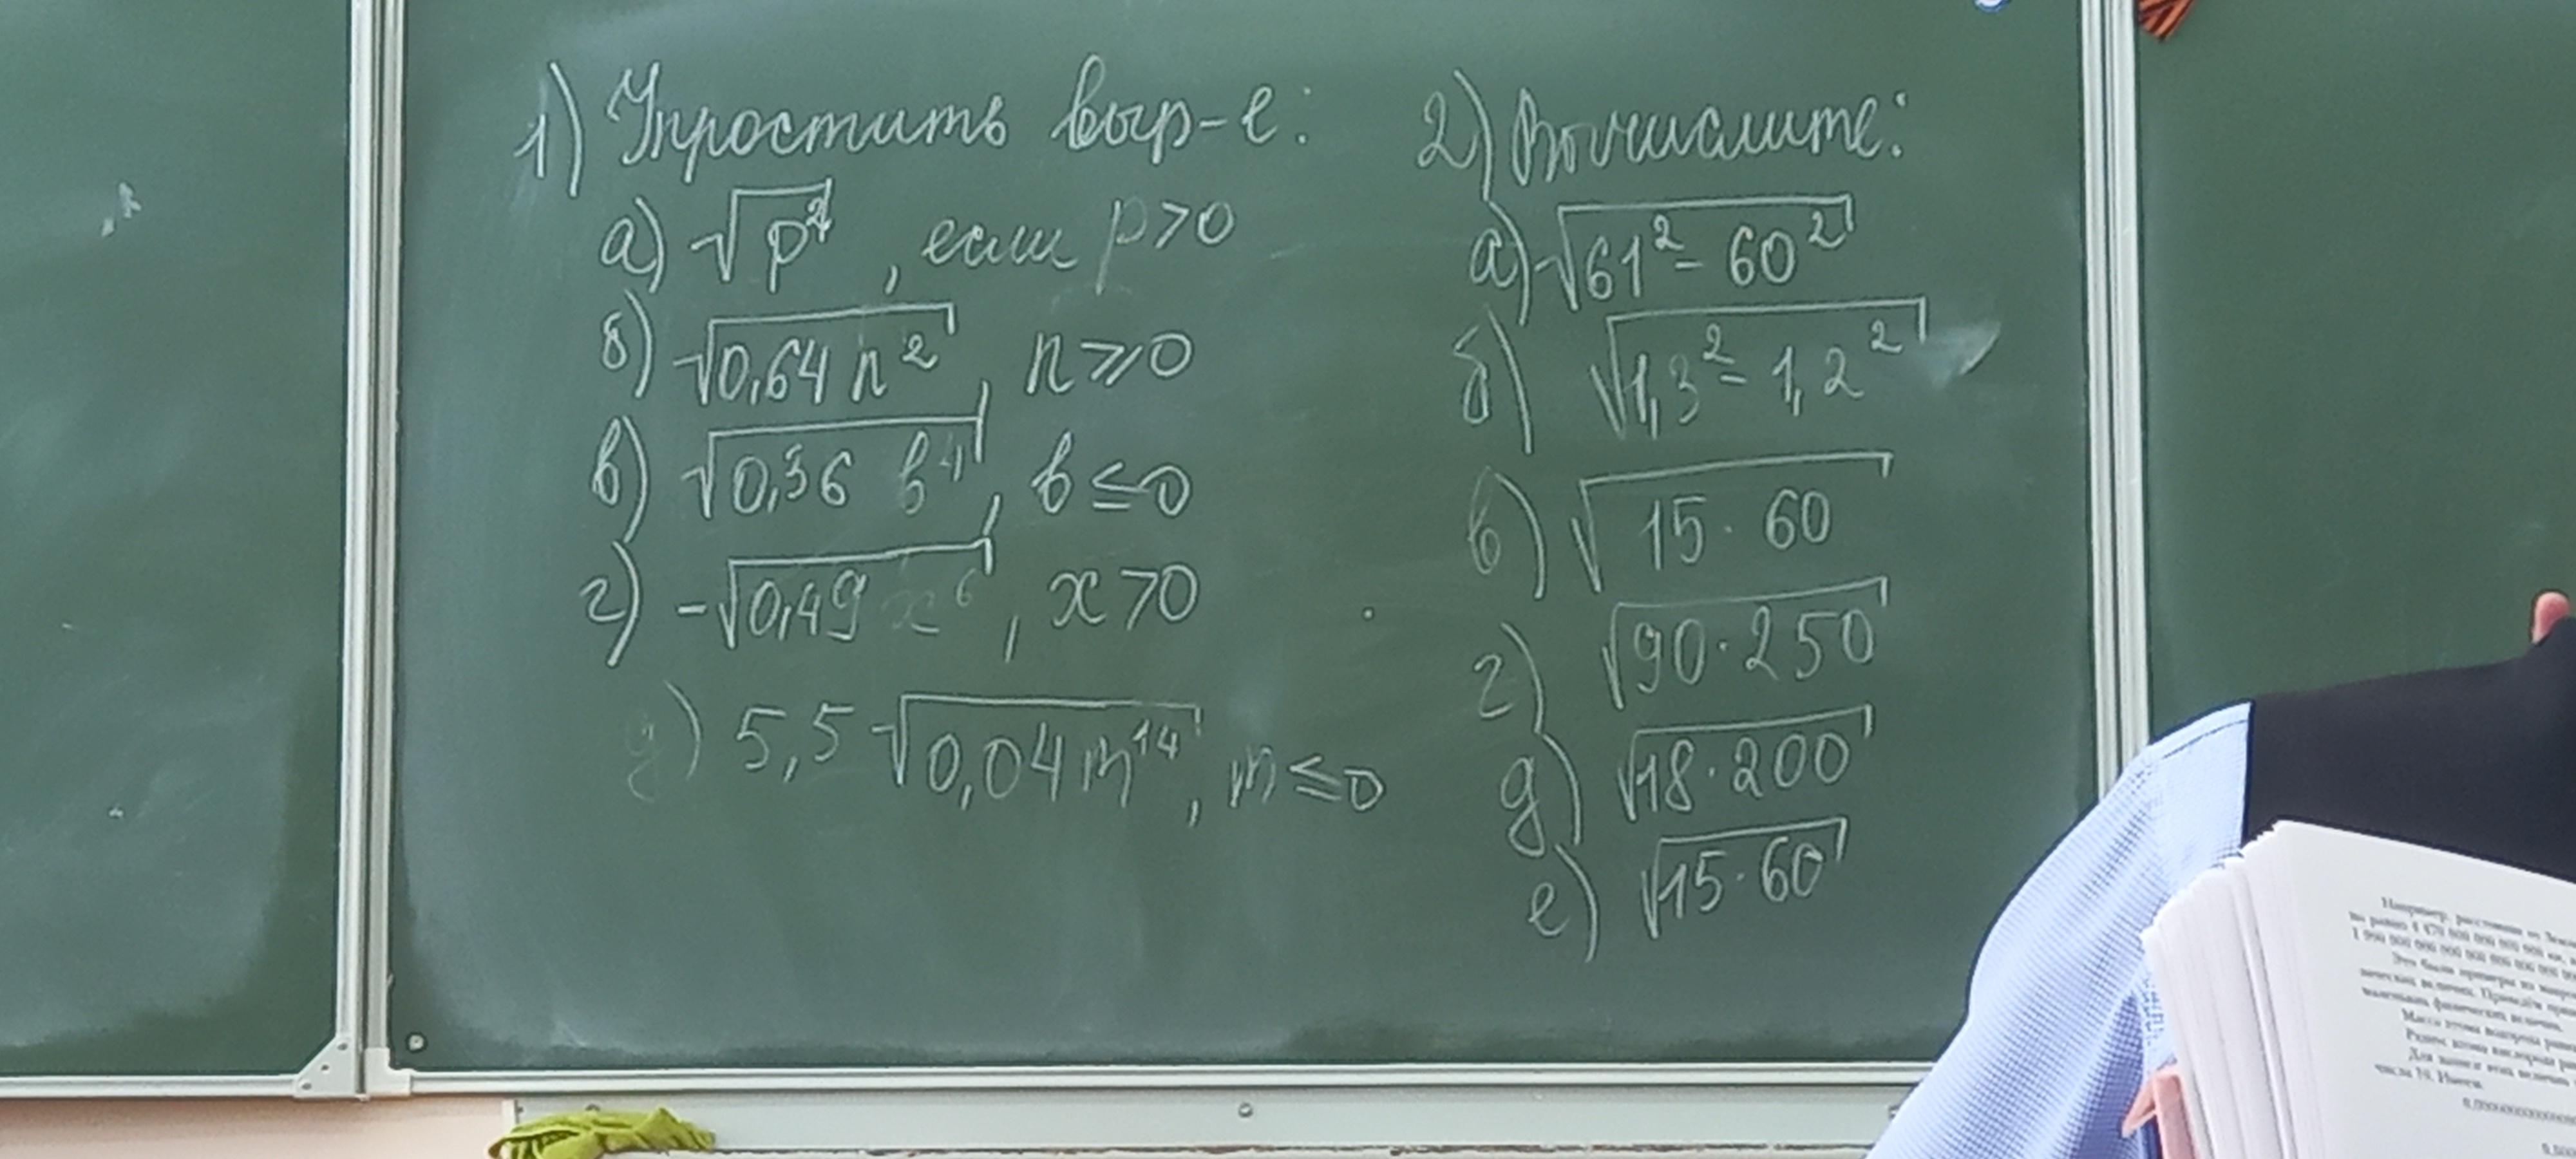 1) Упростить выр-е:
а) √p², если p>0
б) √0,64 n², n⩾0
в) √0,36 b⁴, b≤0
г) -√0,49 x⁶, x>0
д) 5,5 √0,04 m¹⁴, m≤0
2) Вычислите:
а) √61² - 60²
б) √1,3² - 1,2²
в) √15 · 60
г) √90 · 250
д) √18 · 200
е) √15 · 60
Например, расстояние от